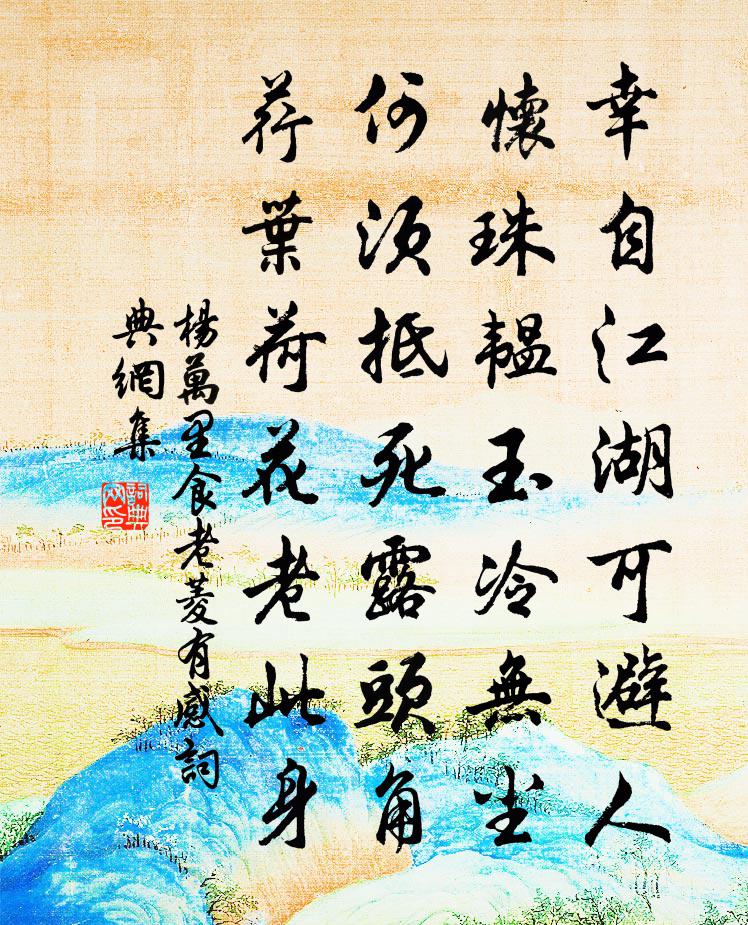 幸自江湖可避人
懷珠韞玉冷無尘
何須抵死露頭角
荇葉荷花老此身
楊萬里食老菱有感詞
典網集
詞典
网印